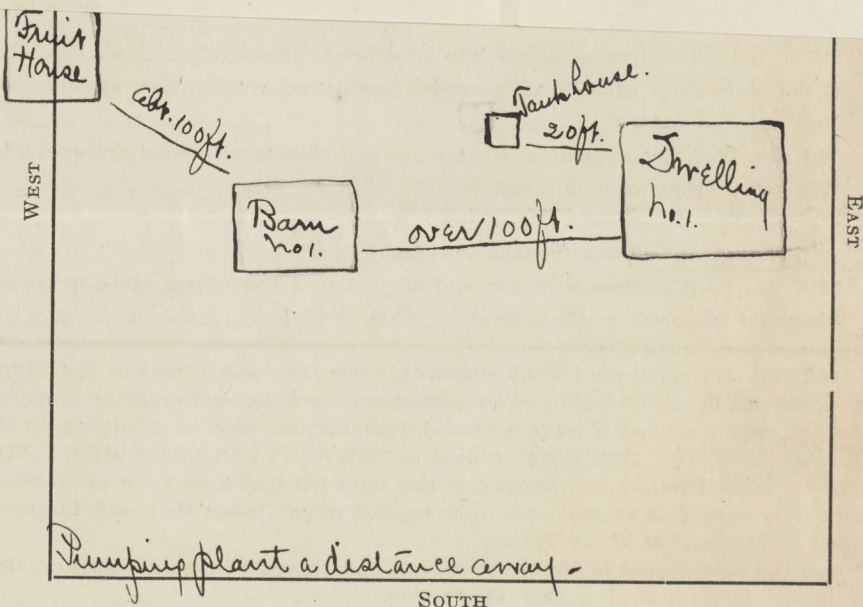 Fruit
House
abt. 100 ft.
Tankhouse.
20 ft.
Dwelling
No. 1.
Barn
No 1.
over 100 ft.
WEST
EAST
Pumping plant a distance away -
SOUTH